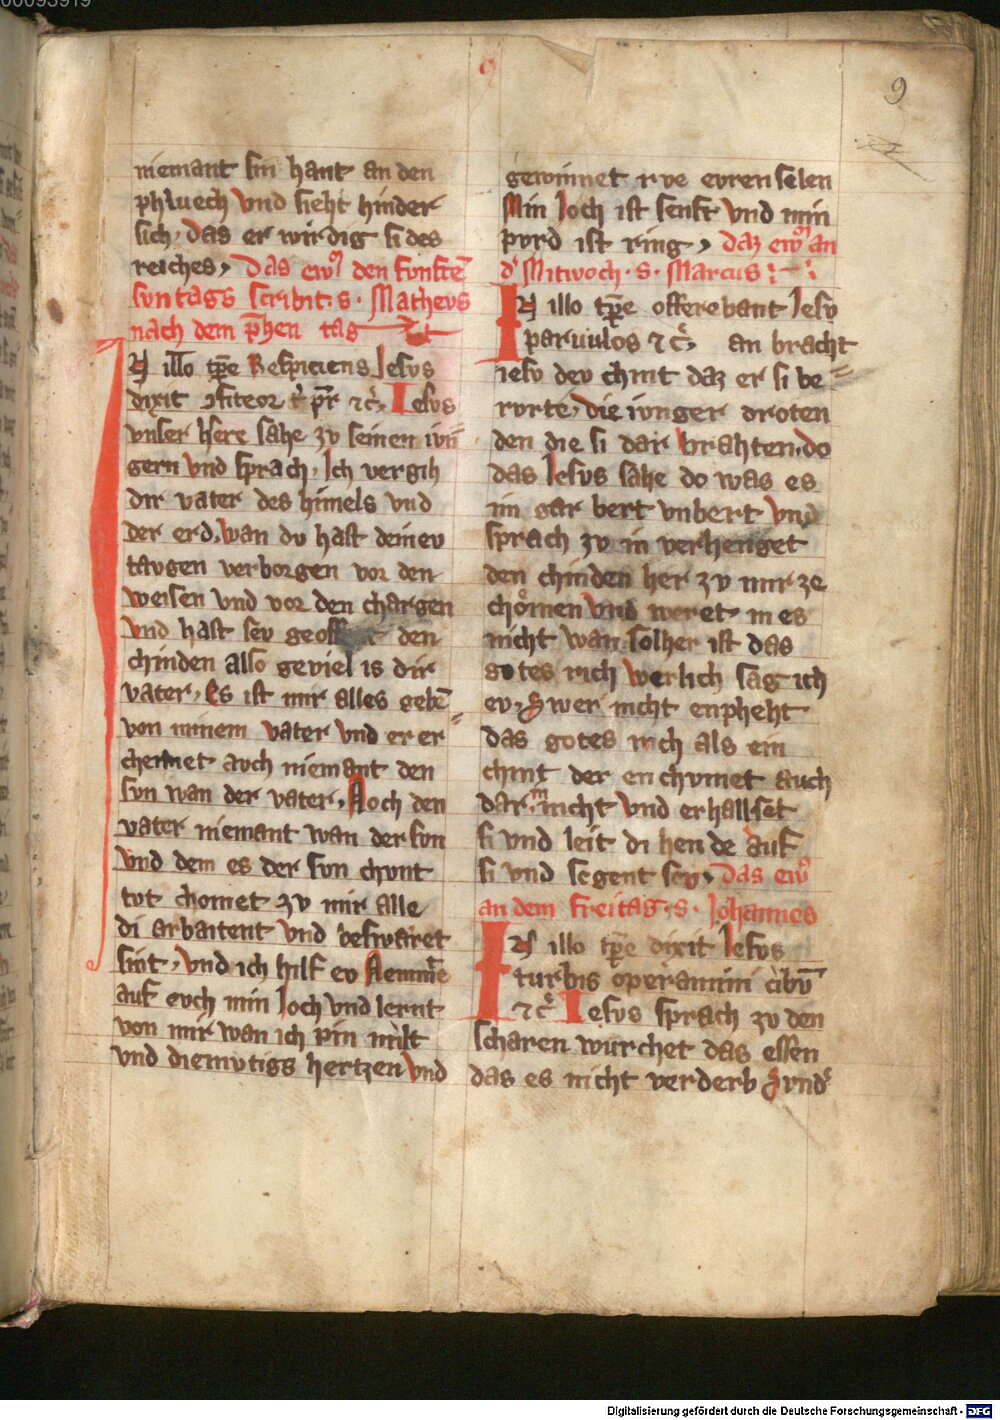 00093919
9
niemant sin hant an den
phluech vnd sieht hinder
sich. das er wirdig si des
reiches, Das ew̄ den funftē
suntags scribit. s. Matheus
nach dem p̄hen tag
IN illo tp̄e Respiciens Jesus
dixit ↄfiteor t' pr̄ ⁊c̄. Jesus
vnser here sahe zv seinen iun
gern vnd sprach. Ich vergih
dir vater des himels vnd
der erd, wan du hast deinev
tavgen verborgen vor den
weisen vnd vor den chargen
vnd hast sev den
chinden also geviel is dir
vater, Es ist mir alles gebē
von minem vater vnd er er
chennet avch niemant den
sun wan der vater, Noch den
vater niemant wan der sun
vnd dem es der sun chvnt
tvt chomet zv mir alle
di arbaitent vnd beswaret
sint, vnd ich hilf ev Nemm̄e
auf evch min Joch vnd lernt
von mir wan ich pin milt
vnd diemvtigs hertzen vnd
gewinnet rve evren selen
Min Joch ist senft vnd min
pvrd ist ring, daz ew̄ an
d' Mitwoch. s. Marcus
IN illo tp̄e offerebant Jesv
paruulos ⁊c̄, an bracht
iesv dev chint daz er si be
rvrte, die ivnger droten
den die si dar brahten. do
das Jesvs sahe do was es
im gar bert vnbert vnd
sprach zv in verhenget
den chinden her zv mir ze
chomen vnd weret in es
nicht wan solher ist das
gotes rich werlich sag ich
ev, Swer nicht enpheht
das gotes rich als ein
chint der en chvmet auch
dar in nicht vnd er hallset
si vnd leit di hende auf
si vnd segent sey, Das ew̄
an dem freitag. s. Johannes
IN illo tp̄e dixit Jesvs
turbis operamini cibū
⁊c̄ Jesvs sprach zv den
scharen wurchet das essen
das es nicht verderb Svnd'
Digitalisierung gefördert durch die Deutsche Forschungsgemeinschaft - DFG